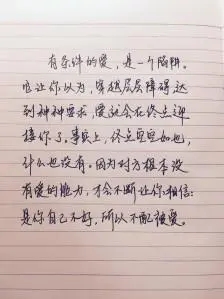 有条件的爱，是一个陷阱。
它让你以为，穿越层层障碍达
到种种要求，爱就会在终点迎
接你了。事实上，终点空空如也，
什么也没有。因为对方根本没
有爱的能力，才会不断让你相信：
是你自己不好，所以不配被爱。